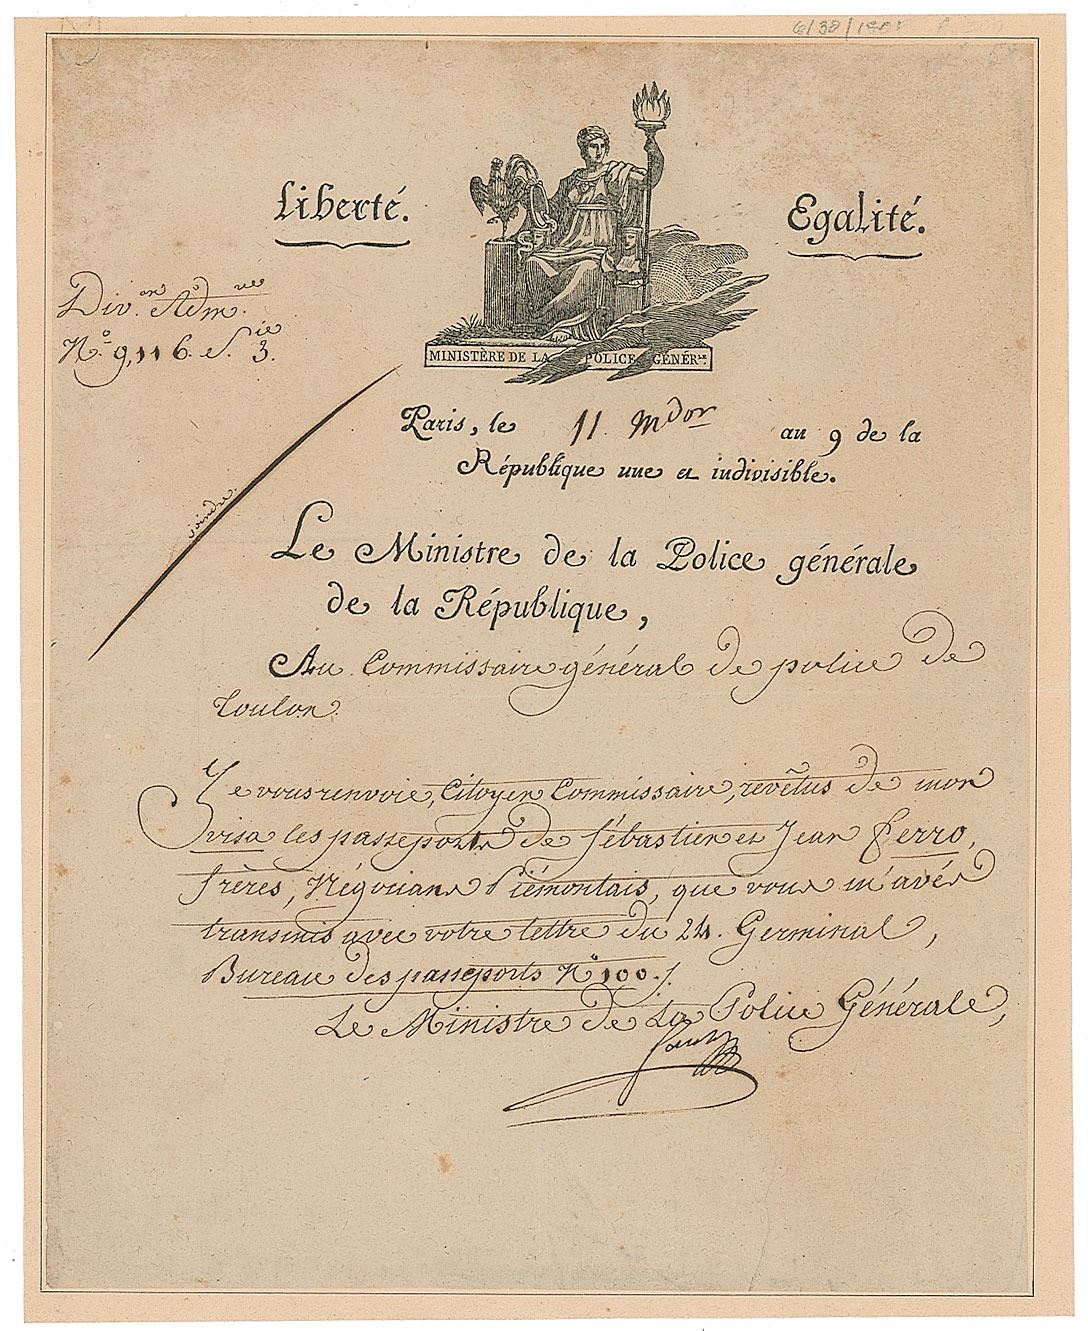 Liberté.
Egalité.
MINISTÈRE DE LA POLICE GÉNÉR.LE
Div.on Adm.ve
N.o 9,116. S.ie 3.
joindre
Paris, le 11 mdor an 9 de la
République une et indivisible.
Le Ministre de la Police générale
de la République,
Au Commissaire général de police de
Toulon.
Je vous renvoie, Citoyen Commissaire, revêtus de mon
visa les passeports de Sébastien et Jean Ferro,
frères, Négocians Piémontais, que vous m'avés
transmis avec votre lettre du 24. Germinal,
Bureau des passeports N.o 100./.
Le Ministre de la Police Générale,